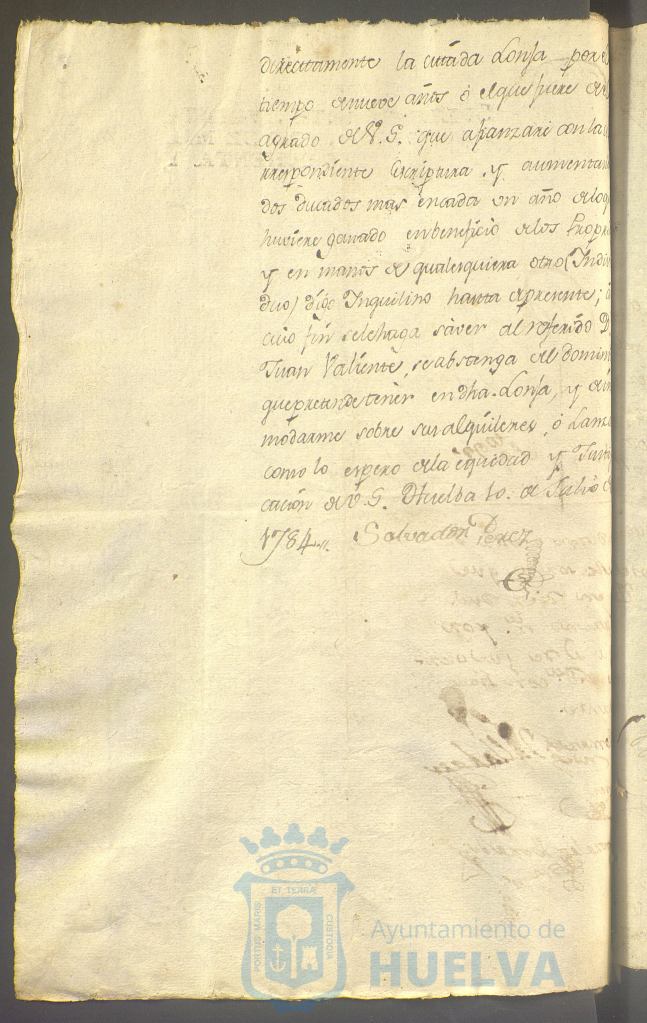 directamente la citada Lonja por el
tiempo de nueve años ó el que fuere de
agrado de V. S. que afianzaré con la
rrespondiente Escriptura y aumentan
dos ducados mas en cada un año de lo q
huviere ganado en beneficio de los Propr
y en manos de qualesquiera otro (Indivi
duo) dicho Inquilino hasta el presente; á
cuio fin se le haga sàver al referido D
Juan Valiente, se abstenga del domin
que pretende tenèr en dha. Lonja, y de in
modarme sobre sus alquileres, ó Lanz
como lo espero de la equidad y Justi
cación de V. S. Huelba 10. de Julio de
1784. Salvador Perez
ET TERRÆ
PORTUS MARIS
CUSTODIA
Ayuntamiento de
HUELVA